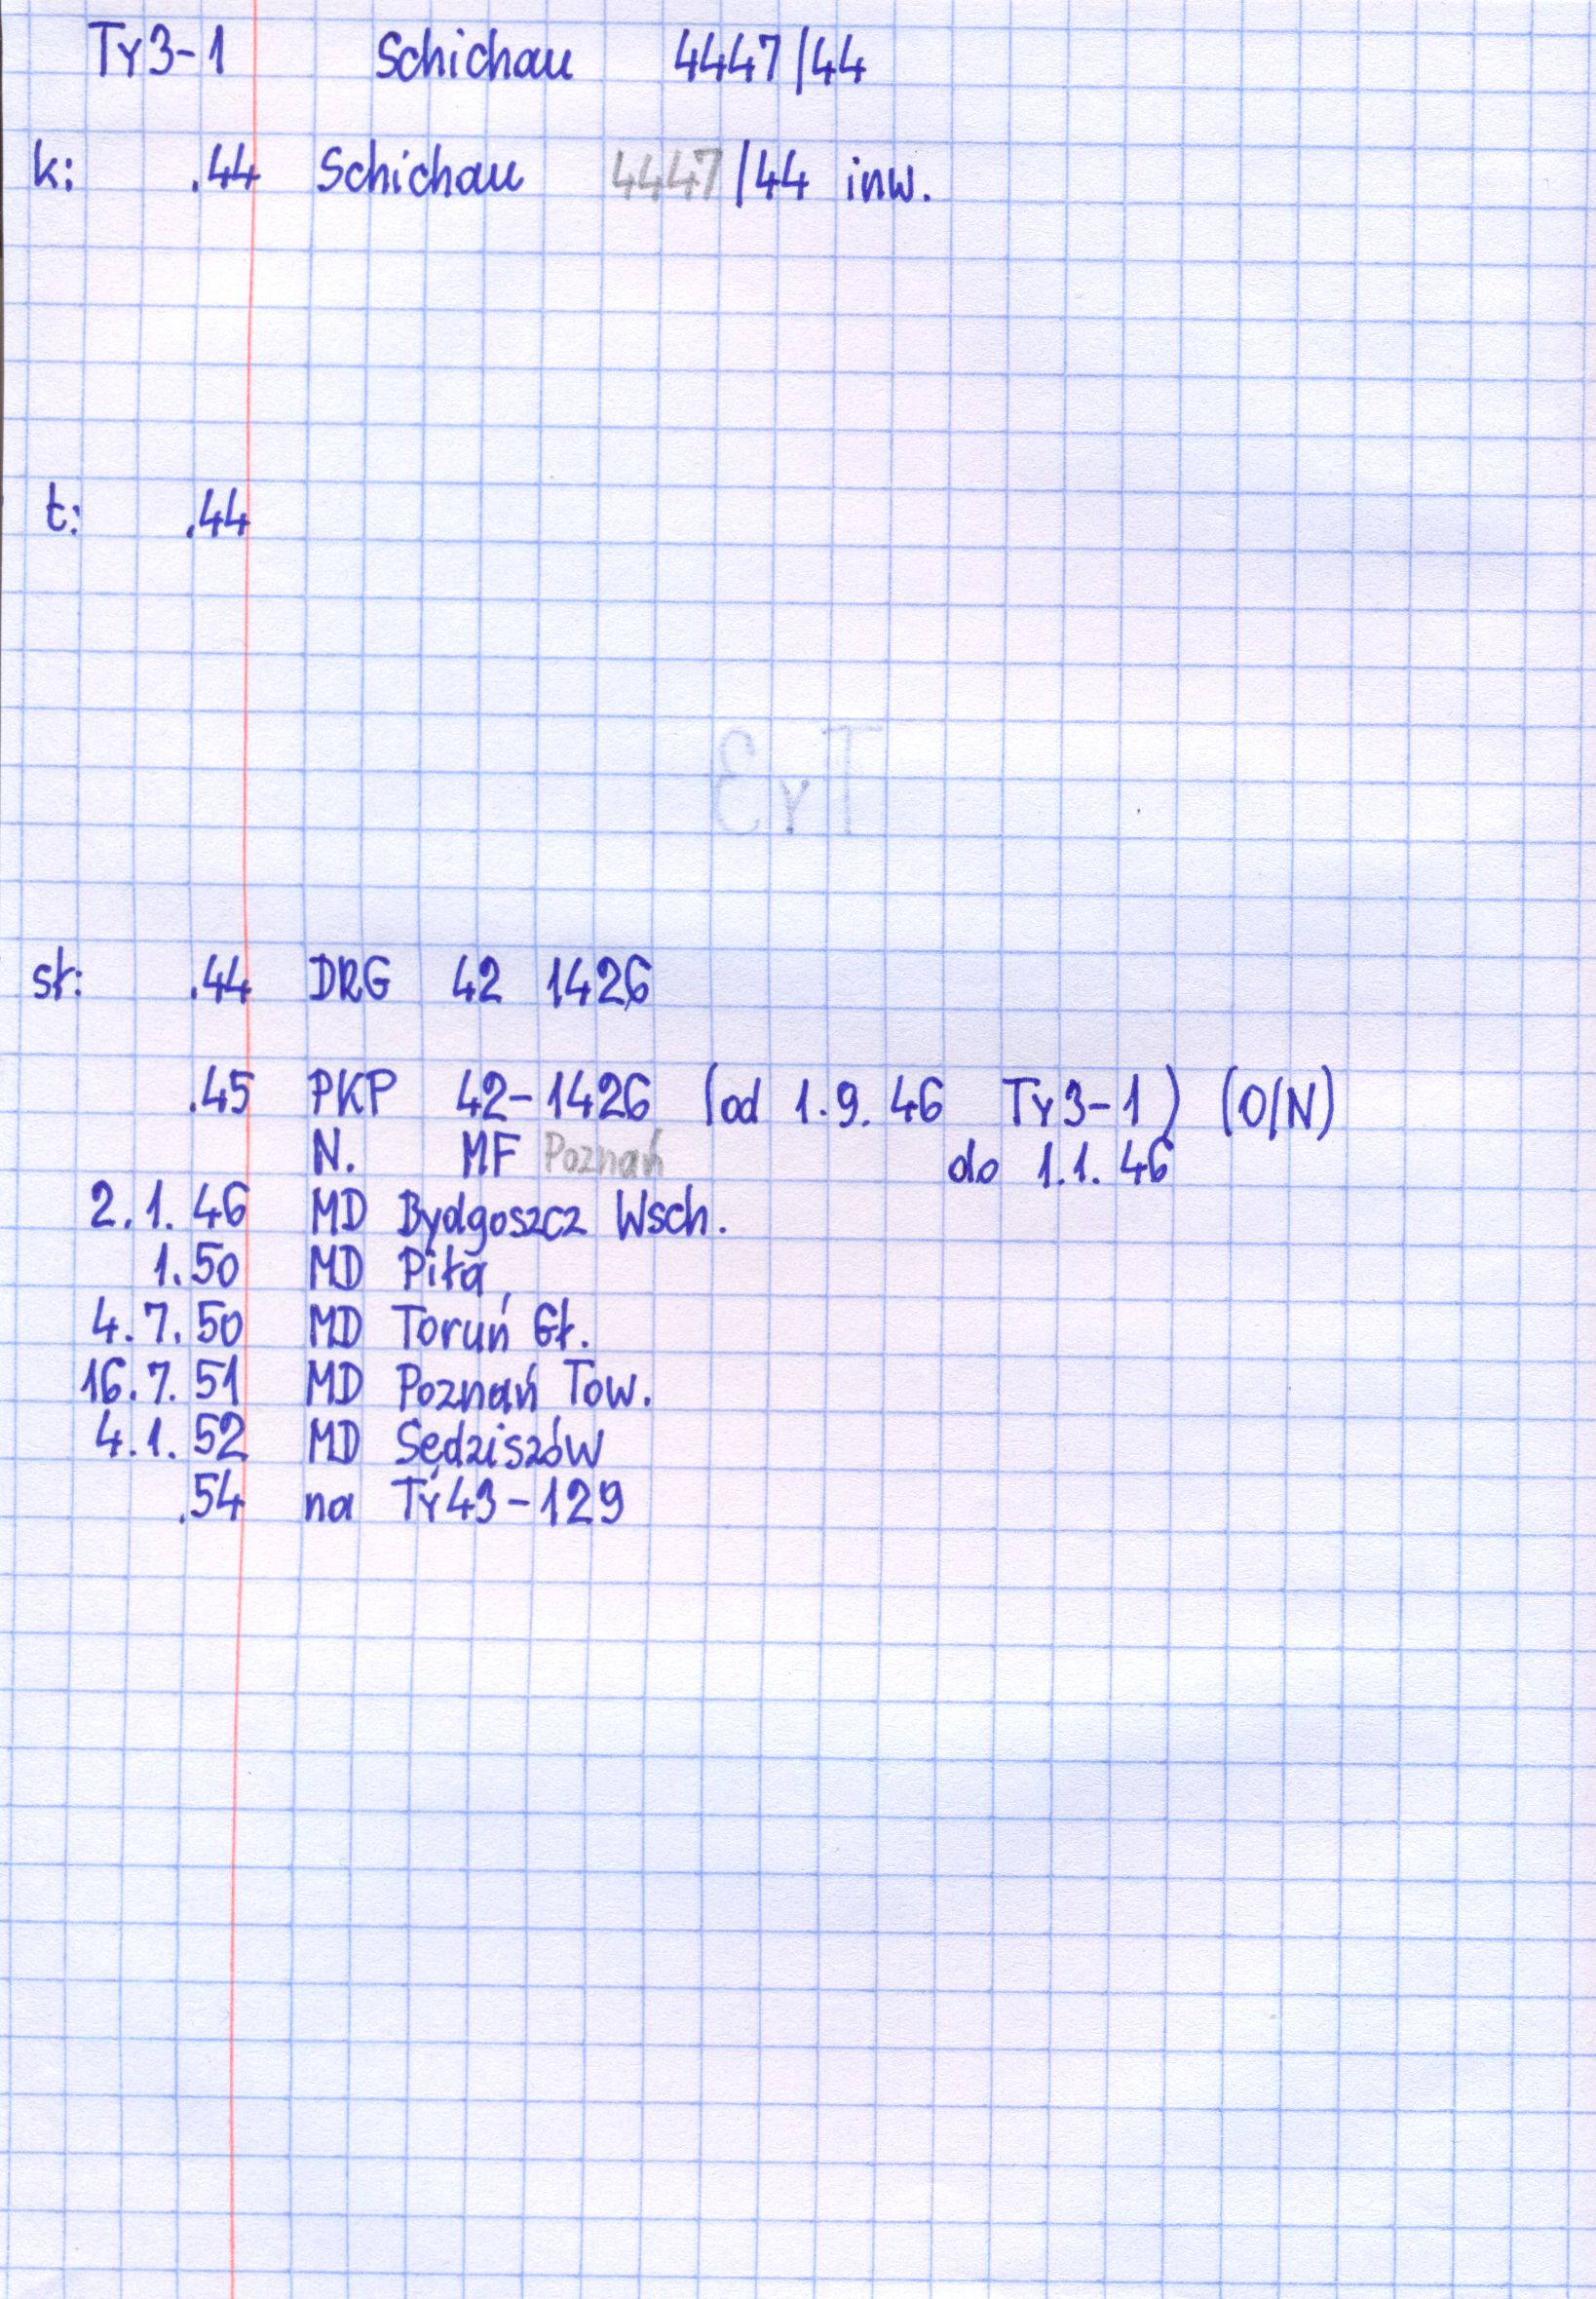 Ty3-1 Schichau 4447/44
k: .44 Schichau 4447/44 inw.
t: .44
Ty3
st: .44 DRG 42 1426
.45 PKP 42-1426 (od 1.9.46 Ty3-1) (O/N)
N. MF Poznań do 1.1.46
2.1.46 MD Bydgoszcz Wsch.
1.50 MD Piła
4.7.50 MD Toruń Gł.
16.7.51 MD Poznań Tow.
4.1.52 MD Sędziszów
.54 na Ty43-129